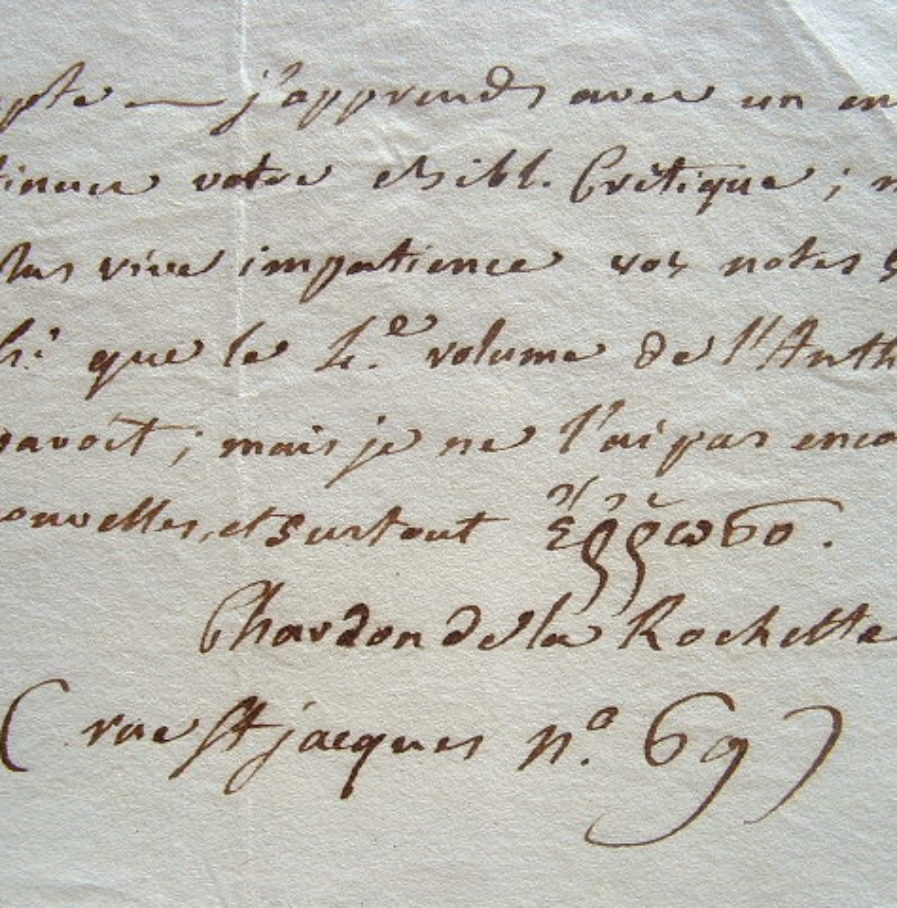 pte — j'apprends avec un en
tinuer votre Bibl. Critique ; n
plus vive impatience vos notes s
que le 4.e volume de l'Anth
avoit ; mais je ne l'ai pas enco
ouvelles, et surtout ἔῤῥωσο.
Chardon de la Rochette
( rue St jacques n.o 69 )